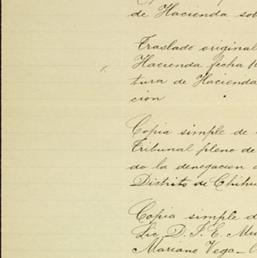 de Hacienda sob
Traslado original
Hacienda fecha 1
tura de Hacienda
cion
Copia simple de
Tribunal pleno de
do la denegacion
Distrito de Chihu
Copia simple d
Lic. D. J. E. Mu
Mariano Vega